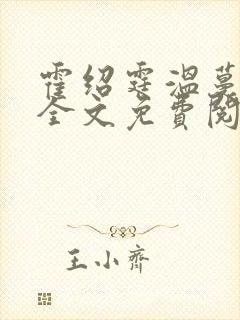 霍绍霆温蔓
全文免费阅
王小齐